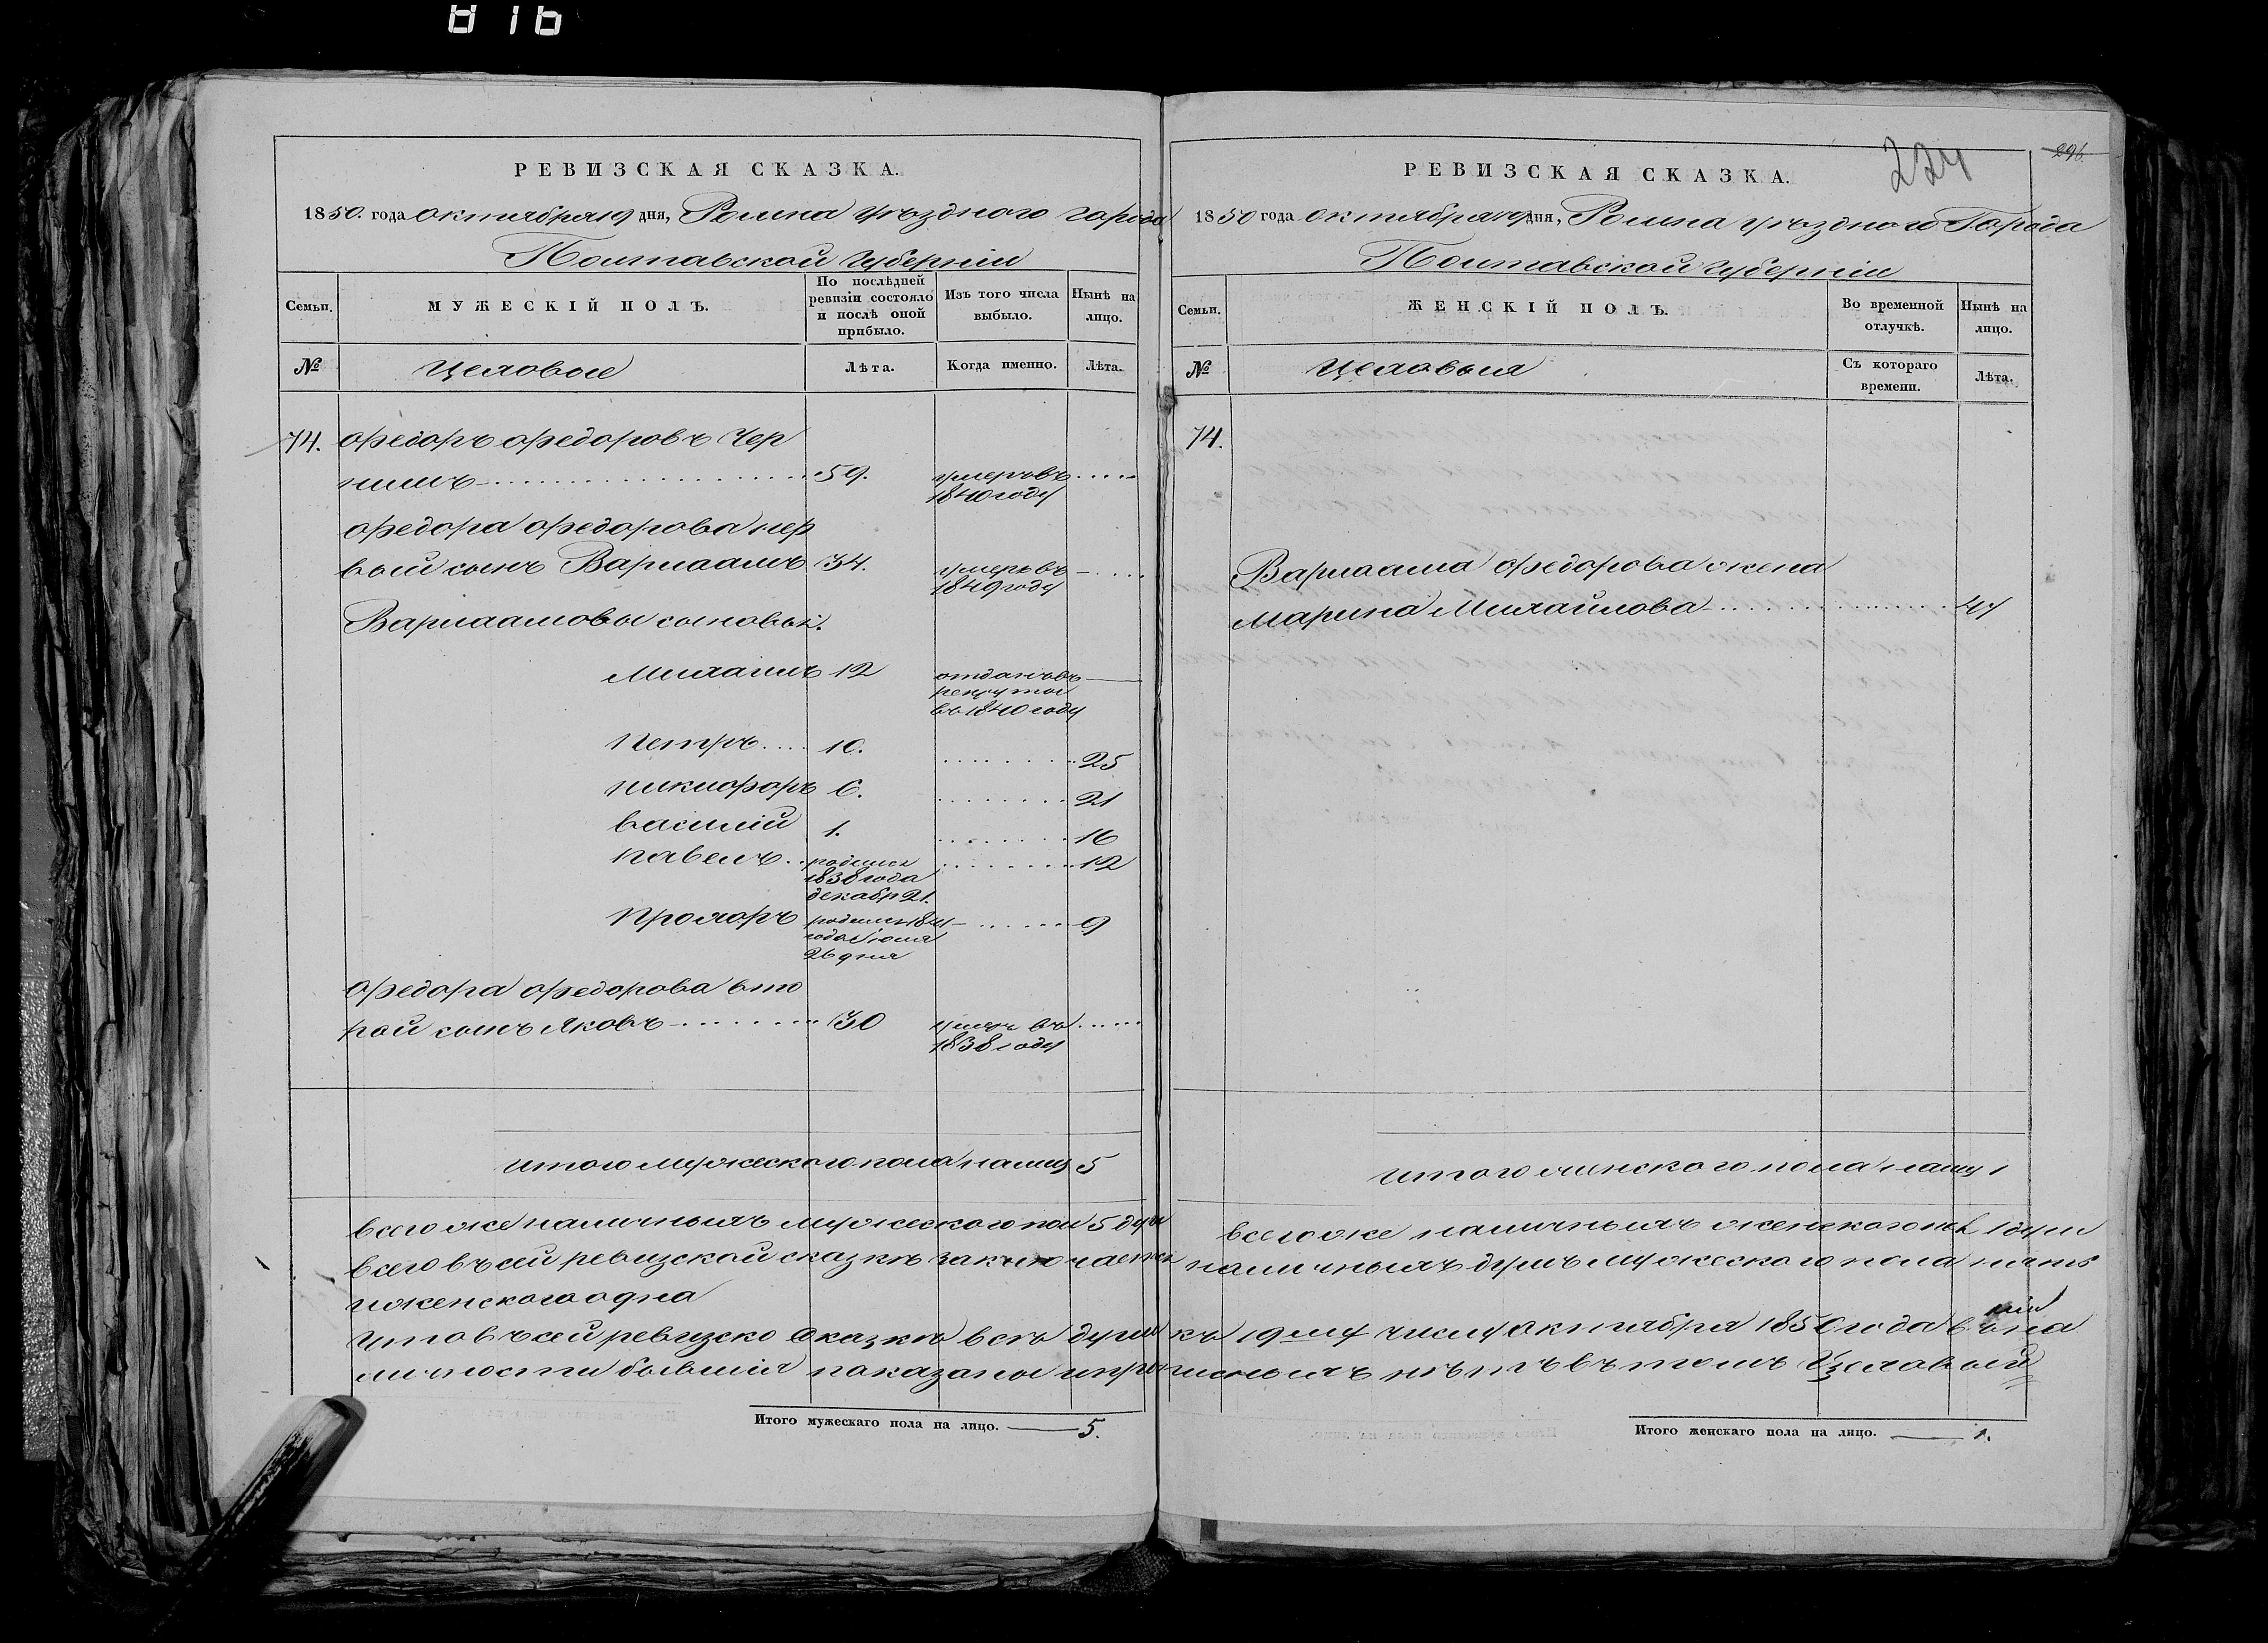 816
РЕВИЗСКАЯ СКАЗКА.
1850. года октября 19 дня, Ромна уѣзднаго города
Полтавской губерніи
Семьи.
МУЖЕСКІЙ ПОЛЪ.
По послѣдней ревизіи состояло и послѣ оной прибыло.
Изъ того числа выбыло.
Нынѣ на лицо.
№
Цеховые
Лѣта.
Когда именно.
Лѣта.
74. Федоръ Федоровъ Чер
нишъ 59. умеръ въ
1840 году
Федора Федорова пер
вый сынъ Варлаамъ 34. умеръ въ
1849 году
Варлаамовы сыновья:
Михаилъ 12 отданъ въ
рекруты
въ 1840 году
Петръ 10. 25
Никифоръ 6. 21
Василій 1. 16
Павелъ родился 12
1838 года
декабр 21.
Прохоръ родился 1841 9
года Іюля
26 дня
Федора Федорова вто
рой сынъ Яковъ 30 умеръ въ
1838 году
Итого мужеского пола налицо 5
Всего же наличныхъ мужеского пол 5 душ
всего въ сей ревизской сказкѣ заключается
и женского одна
что въ сей ревизско сказкѣ всѣ души
личности бывшія показаны и про
Итого мужескаго пола на лицо. 5.
224
296.
РЕВИЗСКАЯ СКАЗКА.
1850 года октября 19 дня, Ромна уѣзднаго Города
Полтавской губерніи
Семьи.
ЖЕНСКІЙ ПОЛЪ.
Во временной отлучкѣ.
Нынѣ на лицо.
№
Цеховыя
Съ котораго времени.
Лѣта.
74.
Варлаама Федорова жена
Марина Михайлова 47
Итого женского пола налицо 1
Всего же наличныхъ женского пол 1 душ
наличныхъ душъ мужеского пола пять
къ 19му числу октября 1850 года въ на
писныхъ нѣтъ въ томъ Цеховый
Итого женскаго пола на лицо. 1.